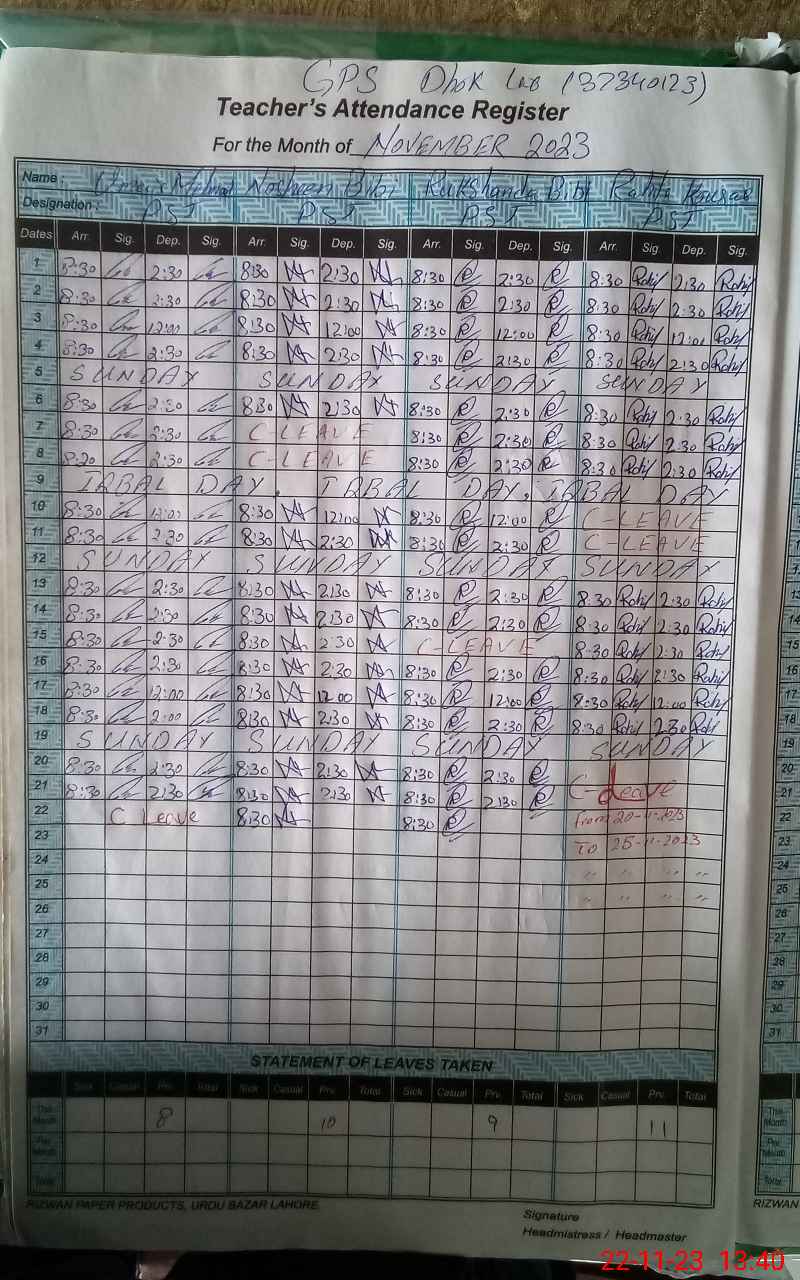 GPS Dhok Lab (37340123)
Teacher's Attendance Register
For the Month of NOVEMBER 2023
Name: Nosheen Bibi Rukhshanda Bibi Rahila Kousar
Designation: PST PST PST PST
Dates Arr. Sig. Dep. Sig. Arr. Sig. Dep. Sig. Arr. Sig. Dep. Sig. Arr. Sig. Dep. Sig.
1 8:30 2:30 8:30 2:30 8:30 2:30 8:30 2:30
2 8:30 2:30 8:30 2:30 8:30 2:30 8:30 2:30
3 8:30 12:00 8:30 12:00 8:30 12:00 8:30 12:00
4 8:30 2:30 8:30 2:30 8:30 2:30 8:30 2:30
5 SUNDAY SUNDAY SUNDAY SUNDAY
6 8:30 2:30 8:30 2:30 8:30 2:30 8:30 2:30
7 8:30 2:30 C-LEAVE 8:30 2:30 8:30 2:30
8 8:30 2:30 C-LEAVE 8:30 2:30 8:30 2:30
9 IQBAL DAY, IQBAL DAY, IQBAL DAY
10 8:30 12:00 8:30 12:00 8:30 12:00 C-LEAVE
11 8:30 2:30 8:30 2:30 8:30 2:30 C-LEAVE
12 SUNDAY SUNDAY SUNDAY SUNDAY
13 8:30 2:30 8:30 2:30 8:30 2:30 8:30 2:30
14 8:30 2:30 8:30 2:30 8:30 2:30 8:30 2:30
15 8:30 2:30 8:30 2:30 C-LEAVE 8:30 2:30
16 8:30 2:30 8:30 2:30 8:30 2:30 8:30 2:30
17 8:30 12:00 8:30 12:00 8:30 12:00 8:30 12:00
18 8:30 2:00 8:30 2:30 8:30 2:30 8:30 2:30
19 SUNDAY SUNDAY SUNDAY SUNDAY
20 8:30 2:30 8:30 2:30 8:30 2:30
21 8:30 2:30 8:30 2:30 8:30 2:30 C-Leave
22 C Leave 8:30 8:30 from 20-11-2023
23 To 25-11-2023
24 " " "
25 " " "
26
27
28
29
30
31
STATEMENT OF LEAVES TAKEN
Sick Casual Prv. Total Sick Casual Prv. Total Sick Casual Prv. Total Sick Casual Prv. Total
This Month 8 10 9 11
Prv. Month
Total
RIZWAN PAPER PRODUCTS, URDU BAZAR LAHORE.
Signature
Headmistress / Headmaster
RIZWAN
22-11-23 13:40